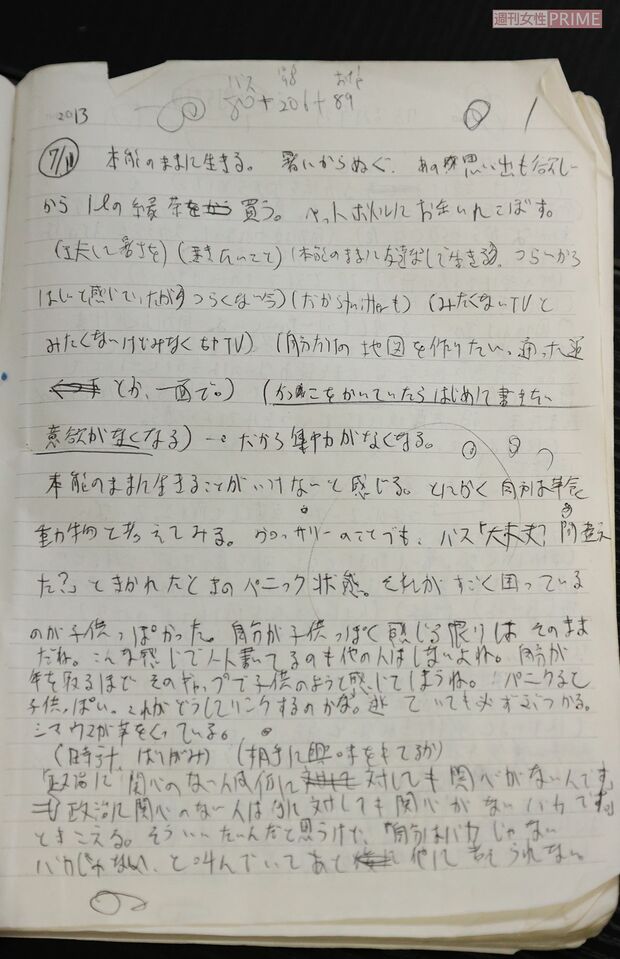 週刊女性PRIME
バス 198 おや
80+206+89
2013
7/11 本能のままに生きる。暑いからぬぐ、あの思い出も欲しい
から 1lの緑茶を 買う。ペットボトルにお金いれてこぼす。
(工夫して暑さを) (書きたいこと) (本能のままに友達なしで生きる つらいから
ほしいと感じていたが つらくない) (だからtwitterも) (みたくないTVと
みたくないけどみなくちゃTV) (自分だけの地図を作りたい、通った道
とか、一面で。) (かっこをかいていたらはじめて書きたい
意欲がなくなる) だから集中力がなくなる。
本能のままに生きることがいけないと感じる。とにかく自分は
動物と考えてみる。グロッサリーのことでも、バス「大丈夫?間違え
た?」ときかれたときのパニック状態。それがすごく困っている
のが子供っぽかった。自分が子供っぽく感じる限りはそのまま
だね。こんな感じで一人書いてるのも他の人はしないよね。自分が
年を取るほどそのギャップで子供のようと感じてしまうね。パニクると
子供っぽい。これがどうしてリンクするのかな。逃げていても必ずぶつかる。
シマウマが草をくっている。
(時計、はりがみ) (相手に興味をもてるか)
「政治に関心のない人は何に対しても関心がないんです」
も政治に関心のない人は何に対しても関心がないバカです」
ときこえる。そういいたいんだと思うけど、「自分はバカじゃない
バカじゃない、と叫んでいてあと 他に考えられない。